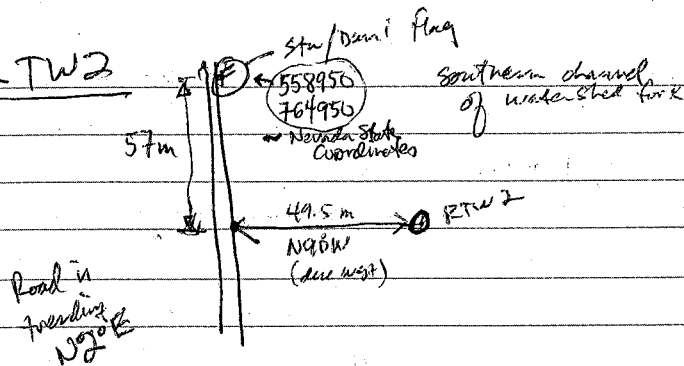 TW2
Stu/Dani flag
558950
764950
~ Nevada State
Coordinates
Southern channel
of watershed fork
57m
49.5 m
RTW 2
(due west)
Road is
trending